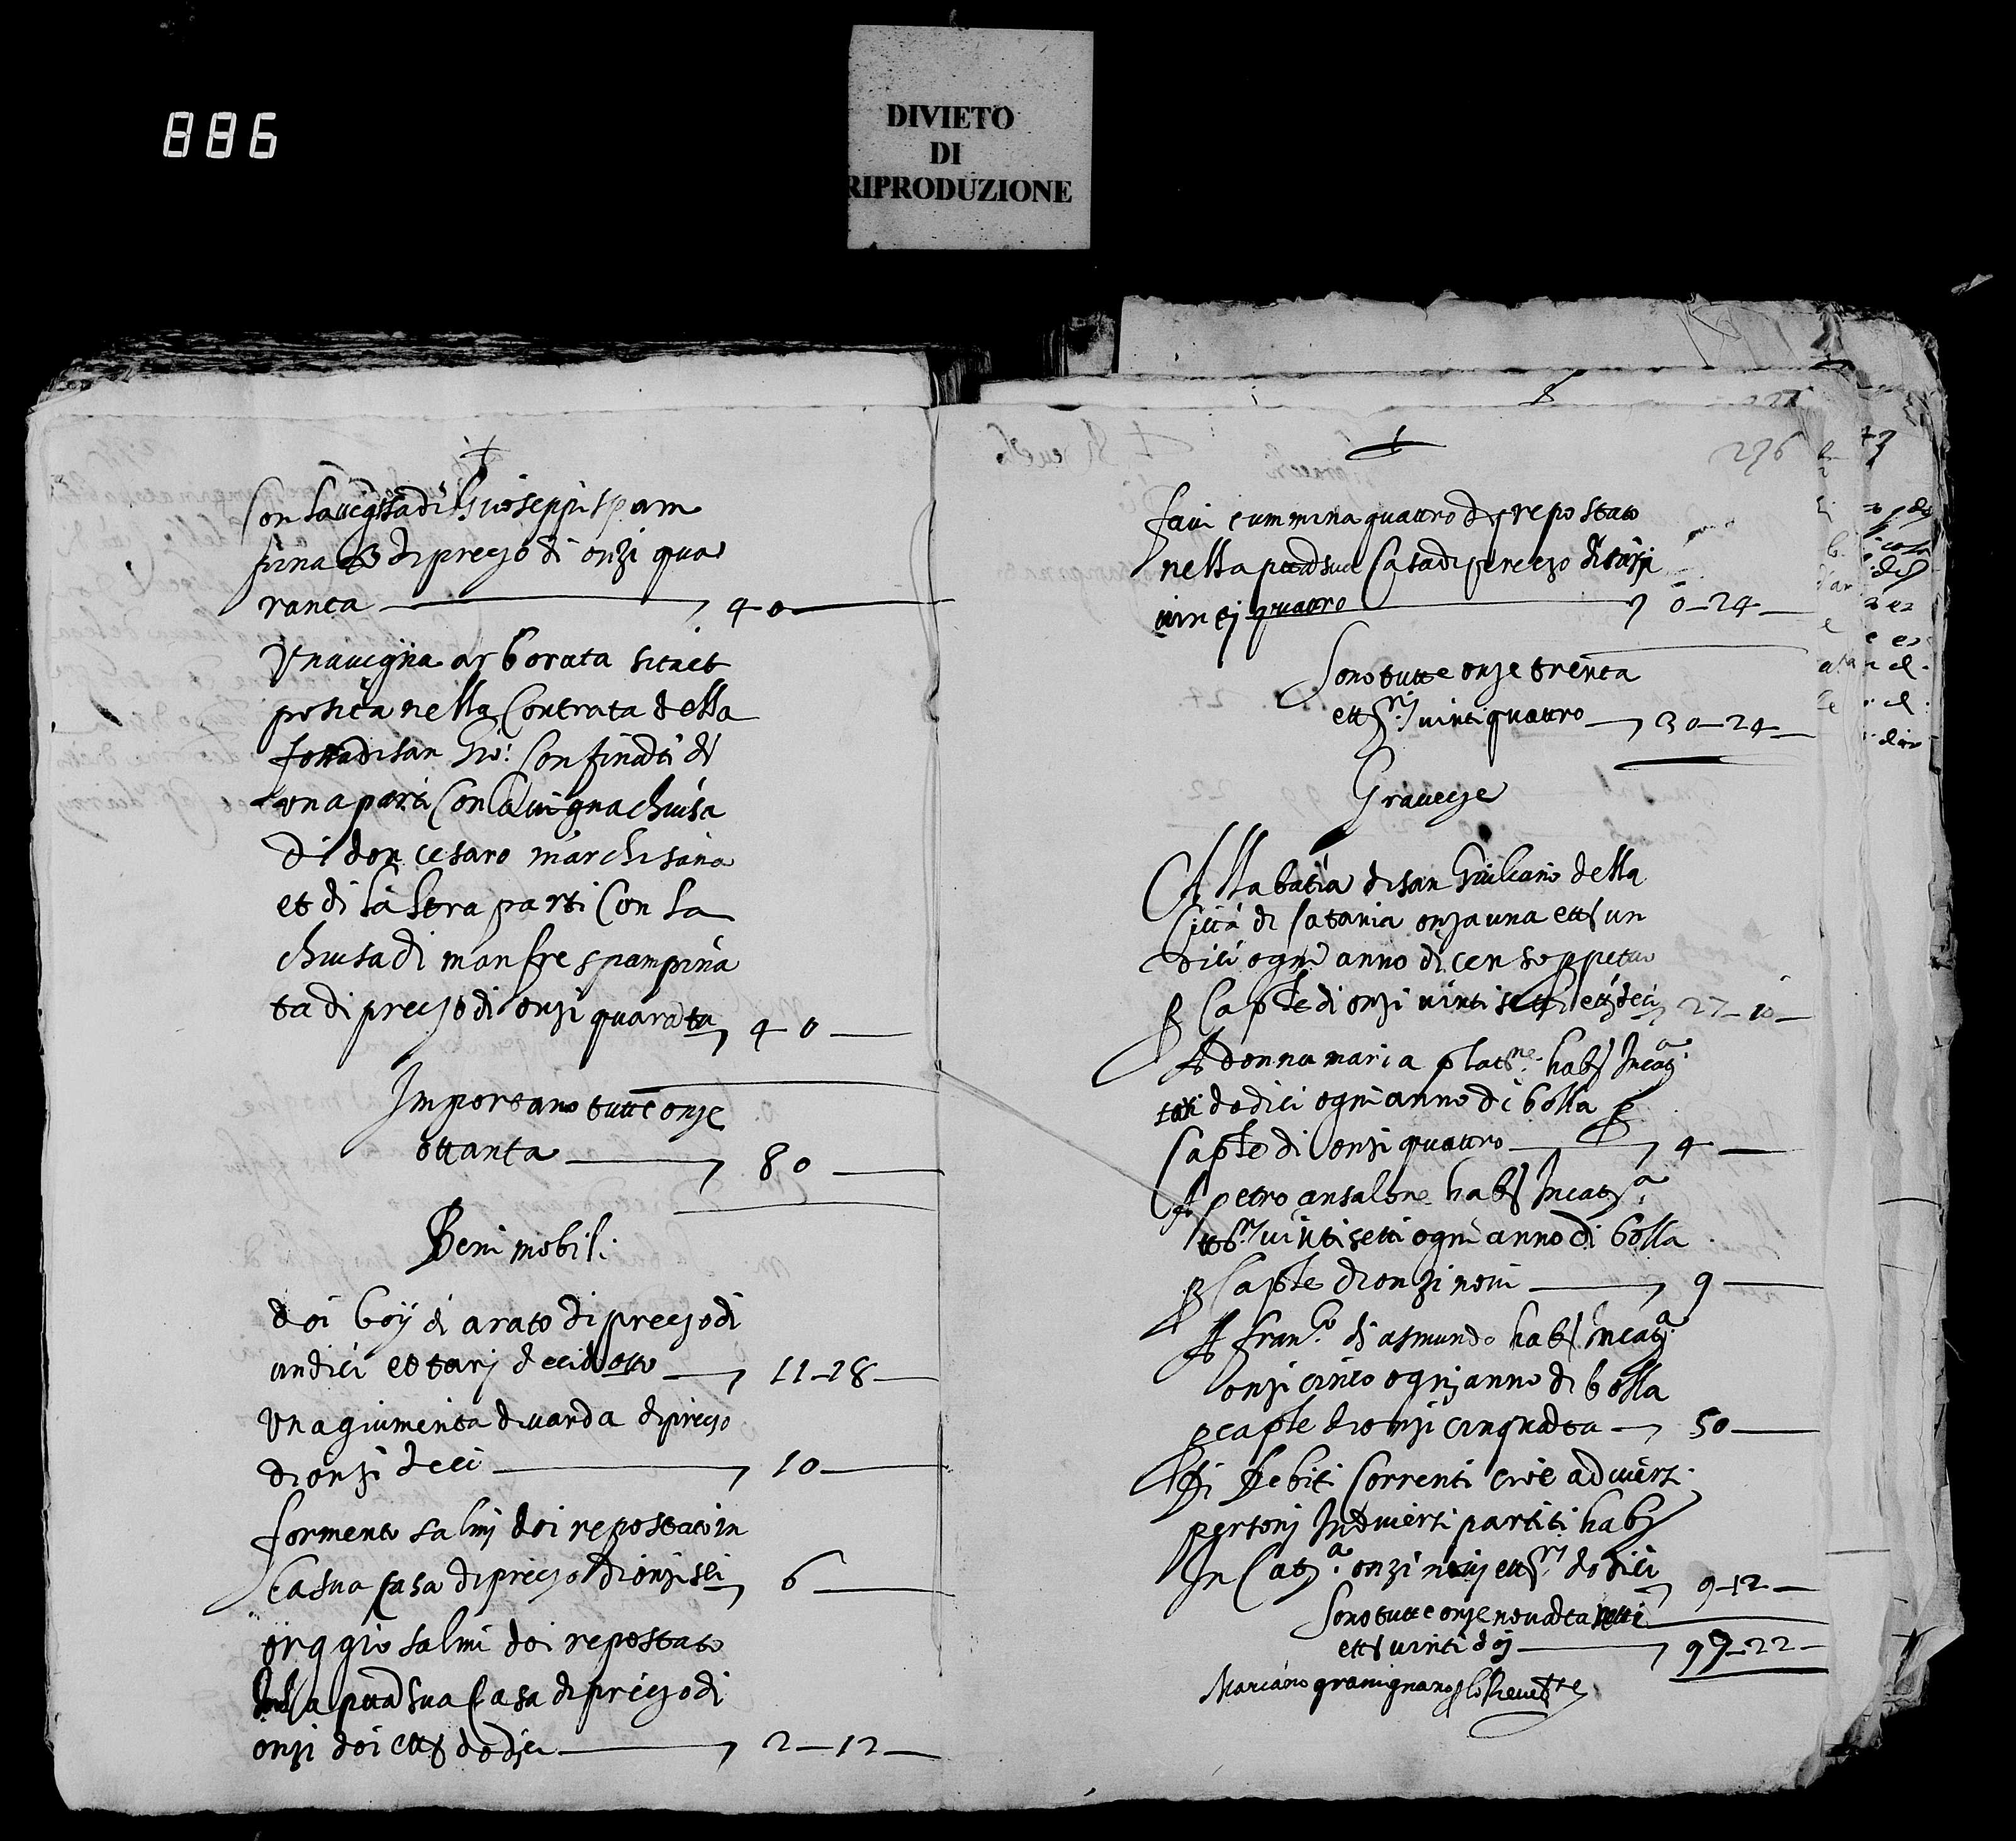 886
DIVIETO
DI
RIPRODUZIONE
Con la vigna di Gioseppi spam
pinato di prezo di onzi qua
ranta 40
Una vigna arborata sita et
posita nella Contrata della
fossa di san Gio: Confinati di
una parti Con la vigna chiusa
Di don cesaro marchisana
et di la ltra parti Con la
chiusa di manfre spampina
ta di prezo di onzi quaranta 40
Importano tutte onze
ottanta 80
Beni mobili
doi boij di arato di prezo di
undici et tarj decidotto 11-18
Una giumenta di varda di prezo
di onzi deci 10
formento salmi doi repostato in
la sua casa di prezo di onzi sei 6
orggio salmi doi repostato
nella pntta sua Casa di prezo di
onzi doi ett dodici 2-12
236
favi tummina quattro di repostato
nella ptta sua Casa di prezzo di tarj
vinti quattro 0-24
Sono tutte onze trenta
ett rj vinti quattro 30-24
Gravezze
Alla batia di san Giuliano della
Città di Catania onza una ett un
dici ogni anno di censo ppetuo
p Caple di onzi vinti setti ett deci 27-10
A donna maria plat ne hab Incata
tari dodici ogni anno di bolla p
Caple di onzi quattro 4
A petro ansalone hab Incata
tt rj vinti setti ogni anno di bolla
p Caple di onzi novi 9
A franco di asmundo hab Incata
onzi cinco ogni anno di bolla
p caple di onzi cinquanta 50
Di Debiti Correnti cioè a diversi
personi In diversi partiti hab
In Cata onzi novi ett rj dodici 9-12
Sono tutte onze novanta setti
ett vinti doj 97-22
Mariano gramignano